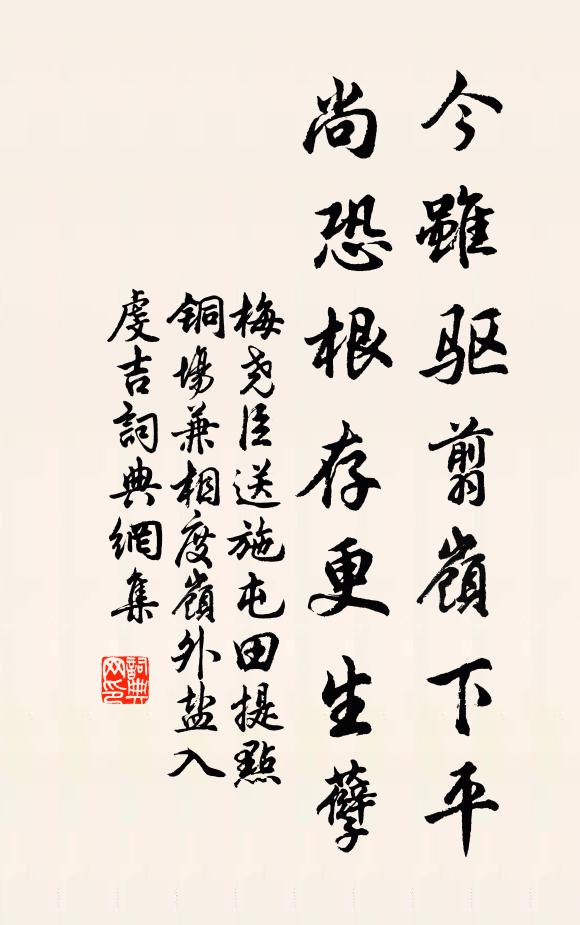 今雖驱翦嶺下平
尚恐根存更生孽
梅尧臣送施屯田提點
銅場兼相度嶺外盐入
虔吉詞典網集
詞典网印